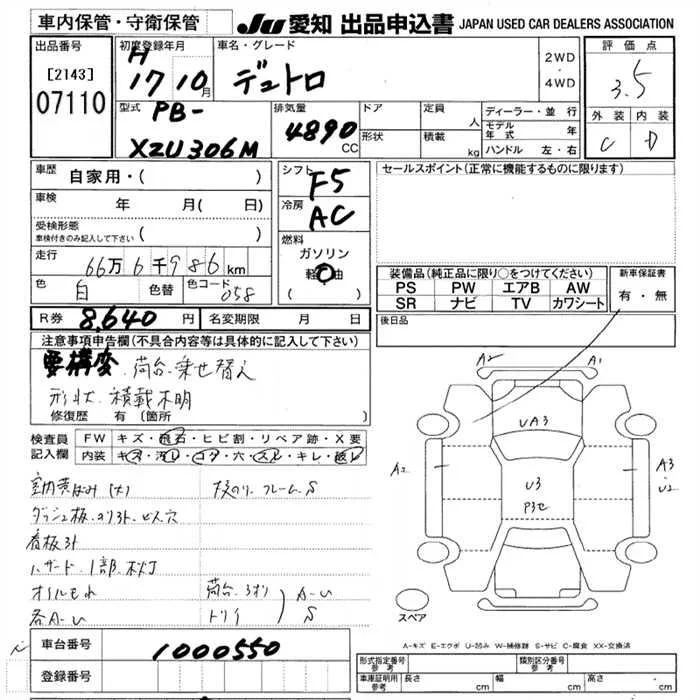 車内保管・守衛保管
JU 愛知 出品申込書 JAPAN USED CAR DEALERS ASSOCIATION
出品番号
[2143]
07110
初度登録年月
H
17 10月
車名・グレード
デュトロ
2WD
・
4WD
評価点
3.5
外装 内装
C D
型式
PB-
XZU306M
排気量
4890
CC
ドア
形状
定員
人
積載
kg
ディーラー・並行
モデル年式 年
ハンドル 左・右
車歴
自家用・(
車検 年 月( 日)
受検形態
車検付きのみ記入して下さい (
走行 66万6千986km
色 白 色替 色コード 058
シフト F5
冷房 AC
燃料
ガソリン
軽油
( )
セールスポイント(正常に機能するものに限ります)
装備品(純正品に限り○をつけてください)
PS PW エアB AW
SR ナビ TV カワシート
新車保証書
有・無
R券 8,640円 名変期限 月 日
後日品
注意事項申告欄(不具合内容等は具体的に記入して下さい)
要構変 荷台.乗せ替え
形状.積載不明
修復歴 有 (箇所 )
検査員
記入欄
FW キズ・飛石・ヒビ割・リペア跡・X要
内装 キズ・汚レ・コゲ・穴・スレ・キレ・破レ
ダッシュ板.
看板計
ハザード.1部.不灯
オイルもれ
各A-U
フレーム.S
荷台
A-U
S
A2 A1
UA3
A2
U3
P3セ
A3
・
U2
スペア
A-キズ E-エクボ U-凹み W-補修跡 S-サビ C-腐食 XX-交換済
車台番号 1000550
登録番号
形式指定番号 参考
類別区分番号 参考
車庫証明用 参考 長さ cm 幅 cm 高さ cm